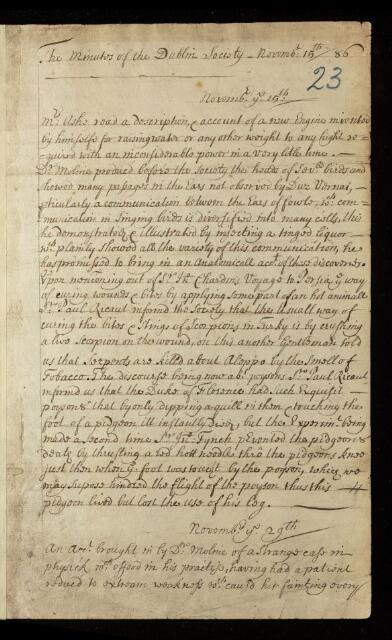 The Minutes of the Dublin Society - Novembr. 15th / 86
23
Novembr. ye. 15th
Mr. Ashe read a description & account of a new Engine invented
by himselfe for raising water or any other weight to any hight re-
=quired with an inconsiderable power in a very little time. —
Dr. Moline produced before the Society the heads of sevll. birds and
shewed many passages in the Ears not observed by Du Vernai,
pticularly a communication between the Ears of fowls, wch. com-
munication in singing birds is diversified into many cells, this
he demonstrately illustrated by injecting a tinged liquor
wch. plainly shewed all the variety of this communication, he
has promised to bring in an Anatomicall acct. of these discoveries.
Upon mentioning out of Sr. Jn. Chardins Voyage to Persia ye way
of cureing wounds & bites by applying some part of an hot animall
Sr. Paul Ricaut informd the Society that the usuall way of
cureing the bites & stings of Scorpions in Turky is by crushing
a live scorpion on the wound, on this another Gentleman told
us that Serpents are killd about Aleppo by the smell of
Tobacco. The discourse being now abt. poysons Sr. Paul Ricaut
informd us that the Duke of Florence had such Exquisit
poysons that by only dipping a quill in them & touching the
foot of a pidgeon itt instantly dies, but the Experimt. being
made a second time Sr. Jn. Fynch prevented the pidgeons
death by thrusting a red hott needle thro the pidgeons knee
just then when ye. foot was toucht by the poyson, which we
may supose hindred the flight of the poyson thus this
pidgeon lived but lost the use of his leg.
Novembr. ye. 29th
An Acct. brought in by Dr. Moline of a strange case in
physick wch. offord in his practise, having had a patient
reduced to extream weakness wch. caus'd his fainting every